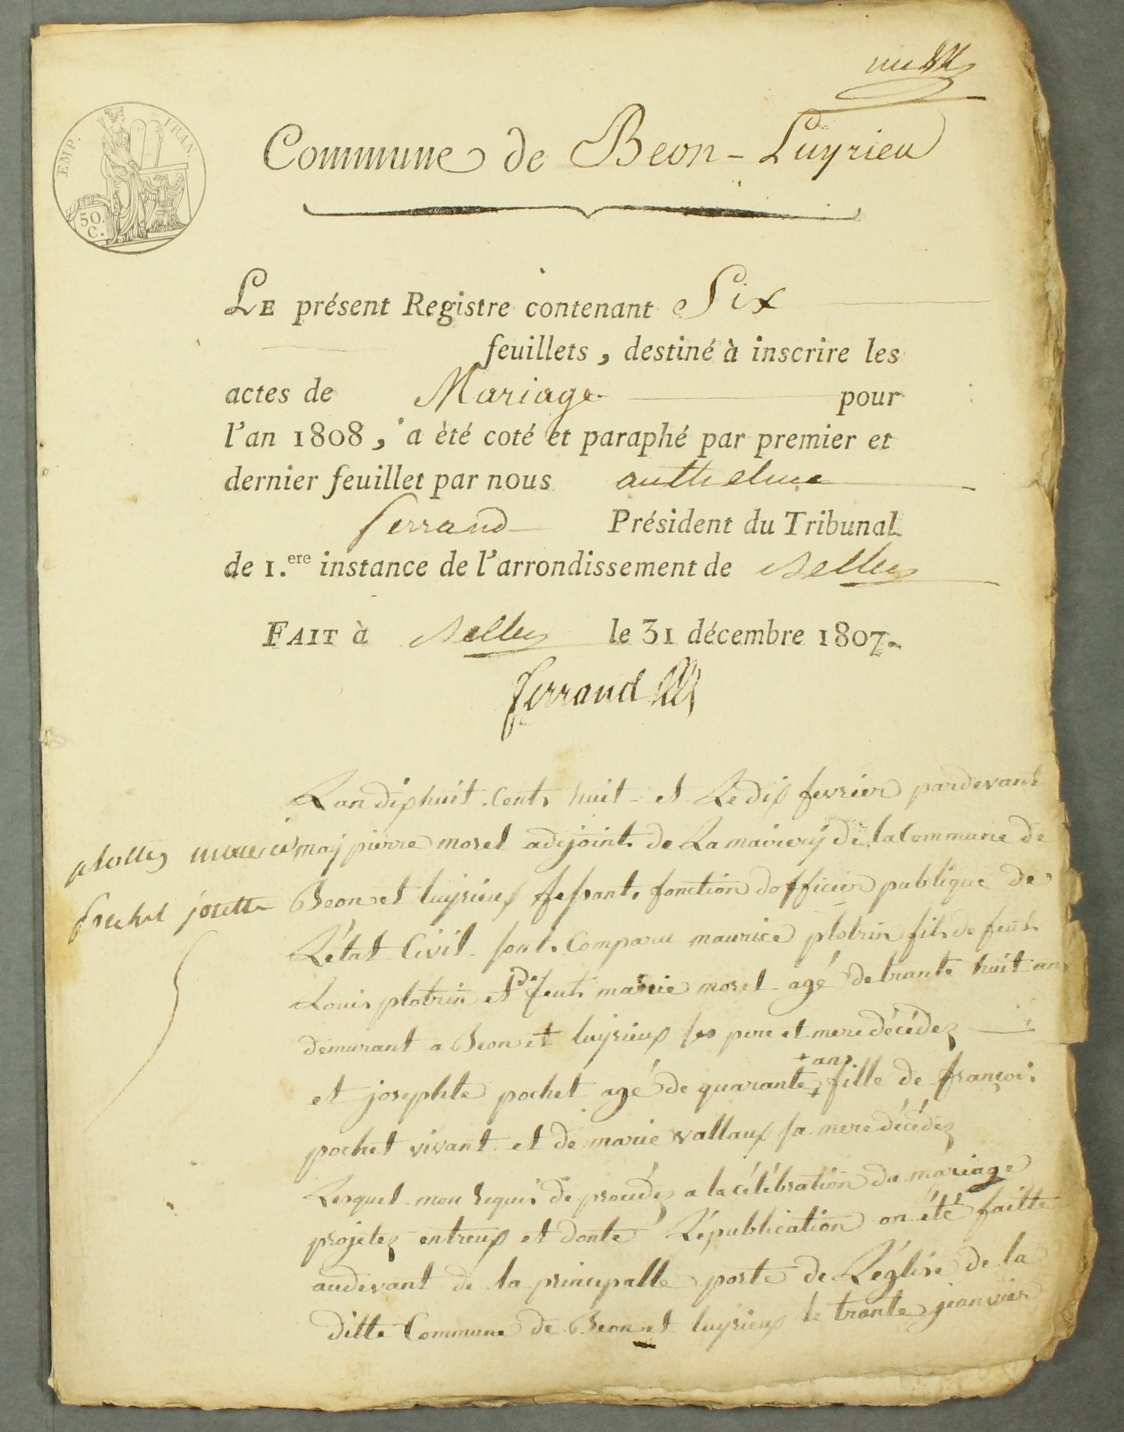 EMP. FRAN.
50. C.
Commune de Beon-Luyrieu
LE présent Registre contenant Six
feuillets, destiné à inscrire les
actes de Mariage pour
l'an 1808, a èté coté et paraphé par premier et
dernier feuillet par nous anthelme
ferrand Président du Tribunal
de 1.ere instance de l'arrondissement de Belley
FAIT à Belley le 31 décembre 1807.
ferrand
Lan dixhuit Cents huit et Le dix fevrier pardevant
moy pierre morel adejoint de La mairery de la Commune de
pochet josette
Beon et luyrieux fesant fonction dofficier publique de
Létat Civil sont Comparu maurice plotrin fils de feut
Louis plotrin et De feut marie morel agé de trante huit ans
demurant a Beon et luyrieux ses pere et mere décédez
et josephte pochet agé de quarante + ans + fille de françois
pochet vivant et de marie vallaux sa mere décédez
Lesquel mon requi de procédez a la célébration du mariage
projetez entreux et donte Lépublication on été faitte
audevant de la principalle porte de Léglise de la
ditte Commune de Beon et luyrieux le trante jeanvier